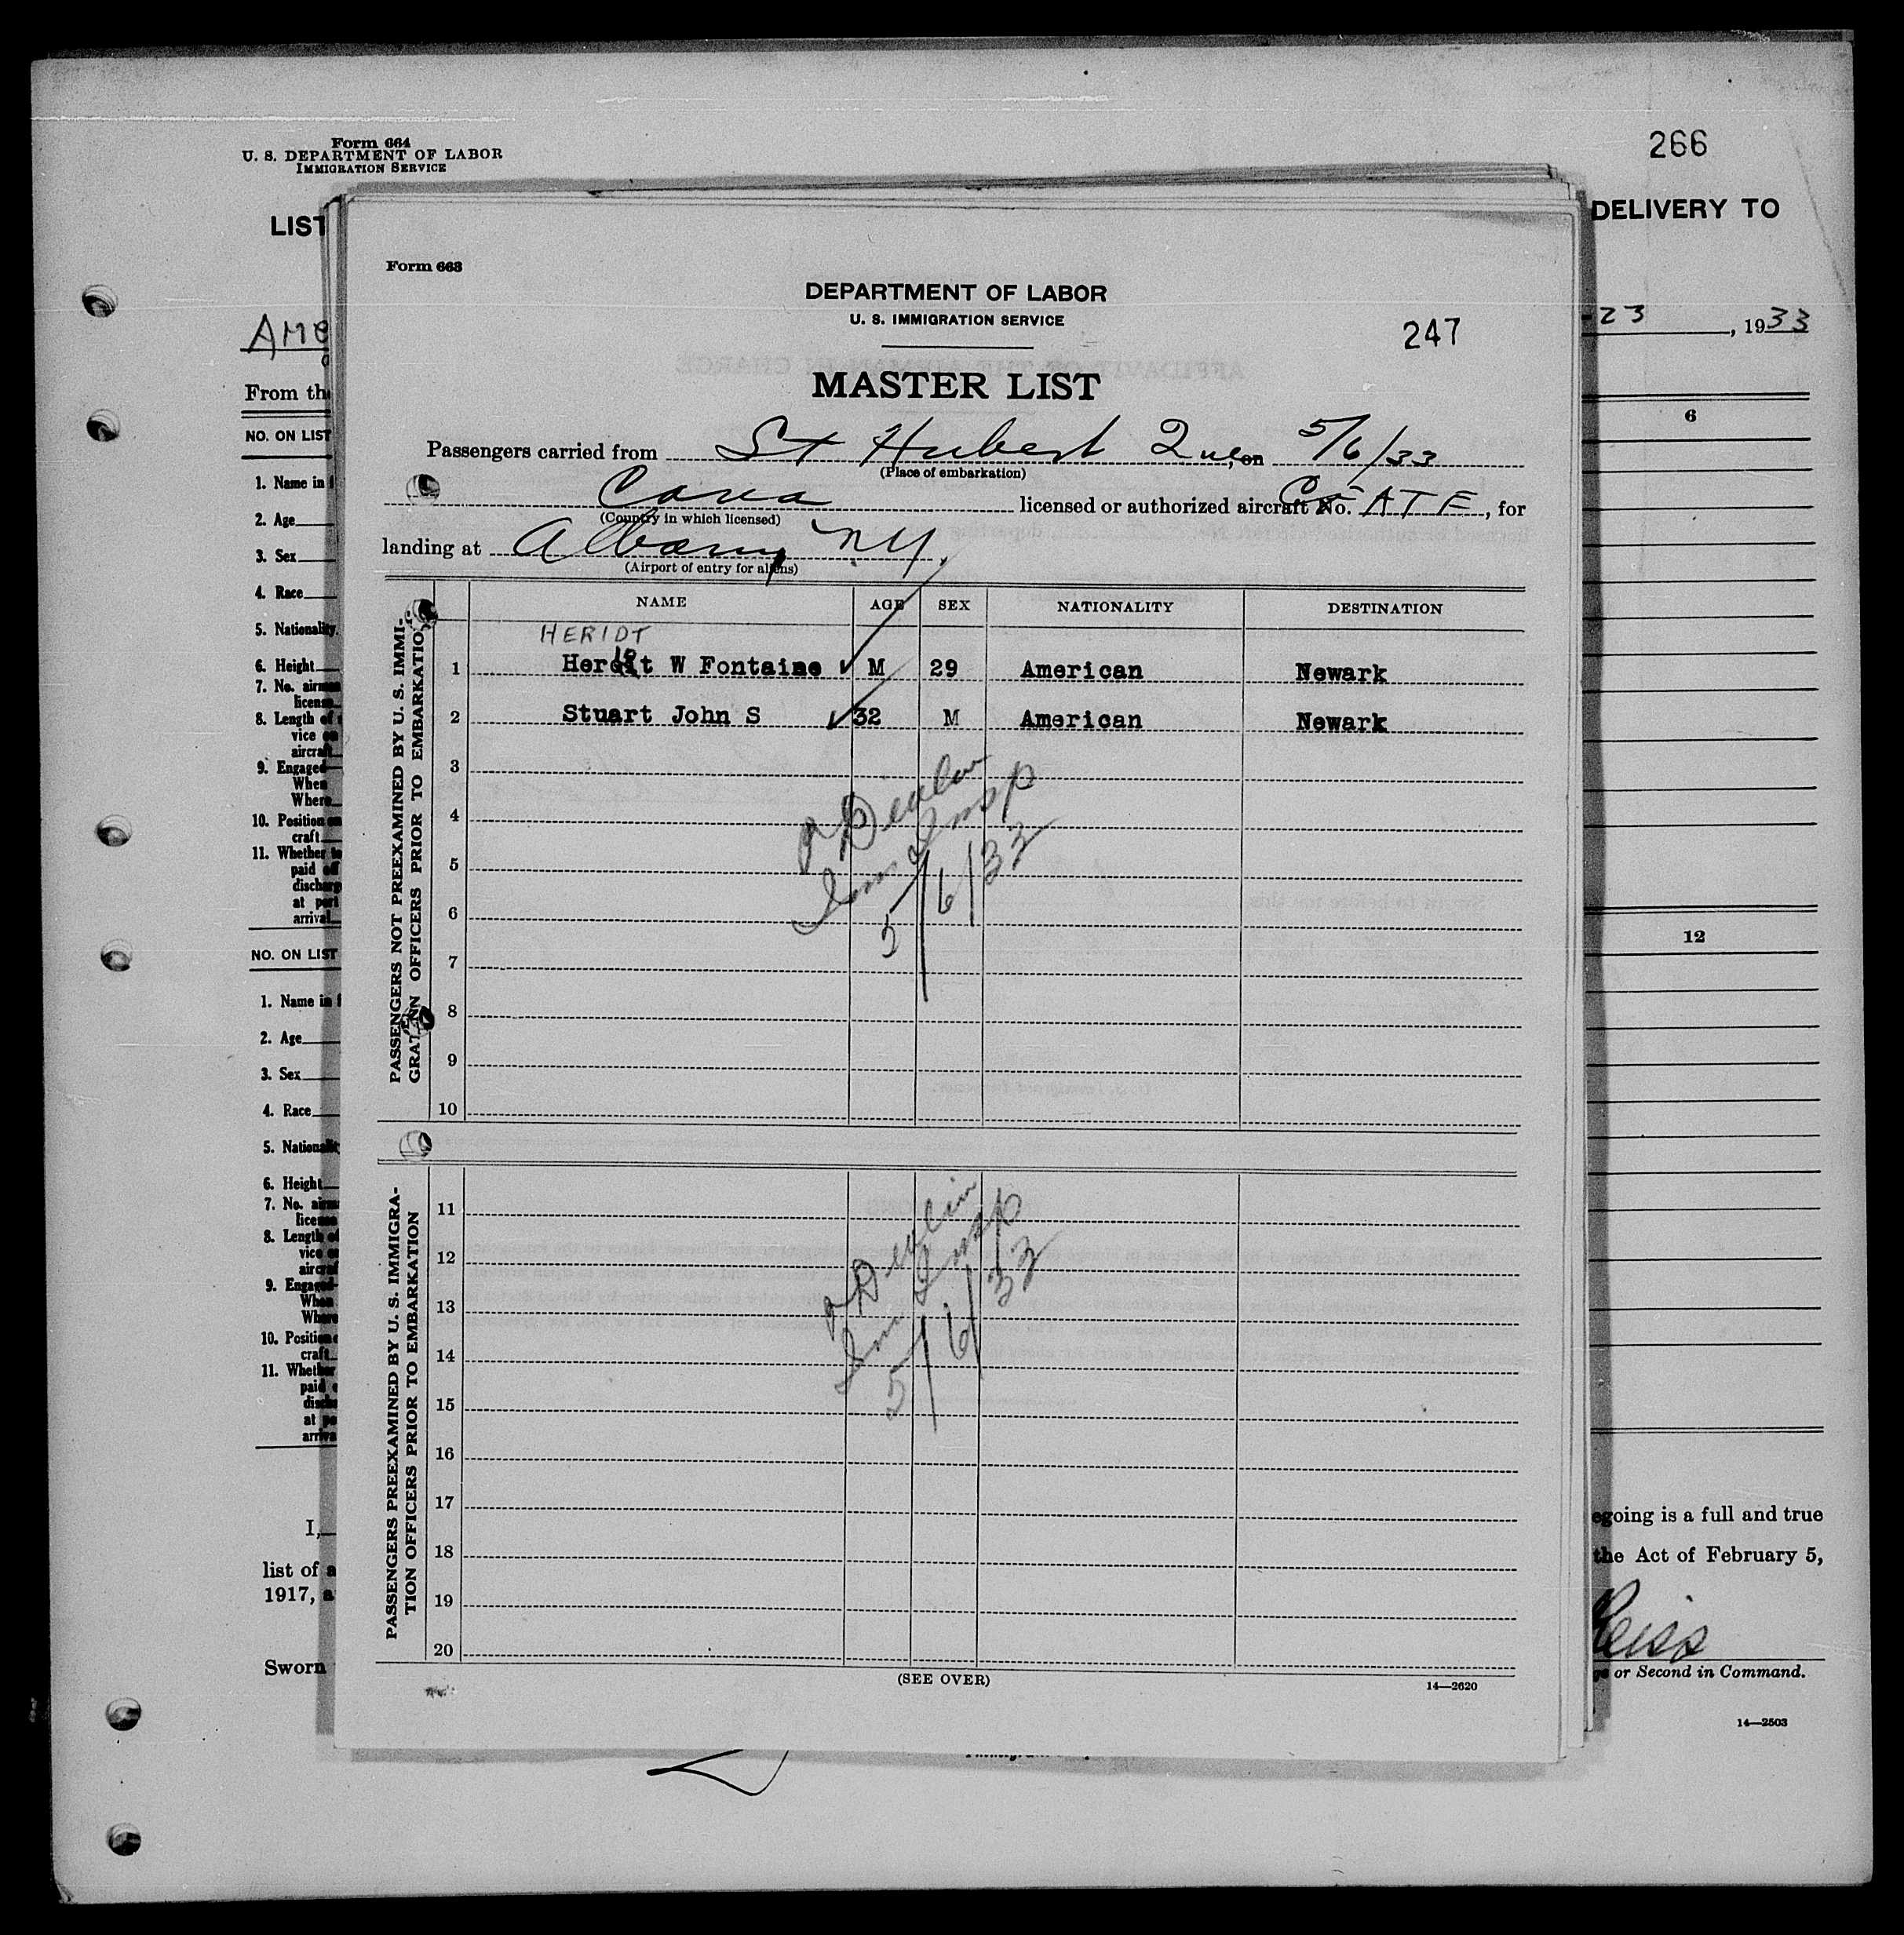 Form 664
U. S. DEPARTMENT OF LABOR
IMMIGRATION SERVICE
266
LIST
DELIVERY TO
AME
23, 1933
From th
NO. ON LIST
6
1. Name in
2. Age
3. Sex
4. Race
5. Nationality
6. Height
7. No. airm
license
8. Length of
vice
aircraft
9. Engaged
When
Where
10. Position
craft
11. Whether
paid
discharg
at port
arrival
NO. ON LIST
12
1. Name in
2. Age
3. Sex
4. Race
5. National
6. Height
7. No.
license
8. Length of
vice
aircraf
9. Engaged
When
Where
10. Position
craft
11. Whether
paid
at
arriva
I,
egoing is a full and true
list of a
the Act of February 5,
1917, a
Sworn
or Second in Command.
14—2503
Form 663
DEPARTMENT OF LABOR
U. S. IMMIGRATION SERVICE
247
MASTER LIST
Passengers carried from St Hubert Que, on 5/6/33
(Place of embarkation)
licensed or authorized aircraft No. ATE, for
(Country in which licensed)
landing at Albany NY.
(Airport of entry for aliens)
NAME AGE SEX NATIONALITY DESTINATION
PASSENGERS NOT PREEXAMINED BY U. S. IMMI-
GRATION OFFICERS PRIOR TO EMBARKATION
HERIOT
1 W Fontaine M 29 American Newark
2 Stuart John S 32 M American Newark
3
4
5
6
7
8
9
10
Devlin
Imm Insp
5/6/33
PASSENGERS PREEXAMINED BY U. S. IMMIGRA-
TION OFFICERS PRIOR TO EMBARKATION
11
12
13
14
15
16
17
18
19
20
Devlin
Imm Insp
5/6/33
(SEE OVER)
14—2620